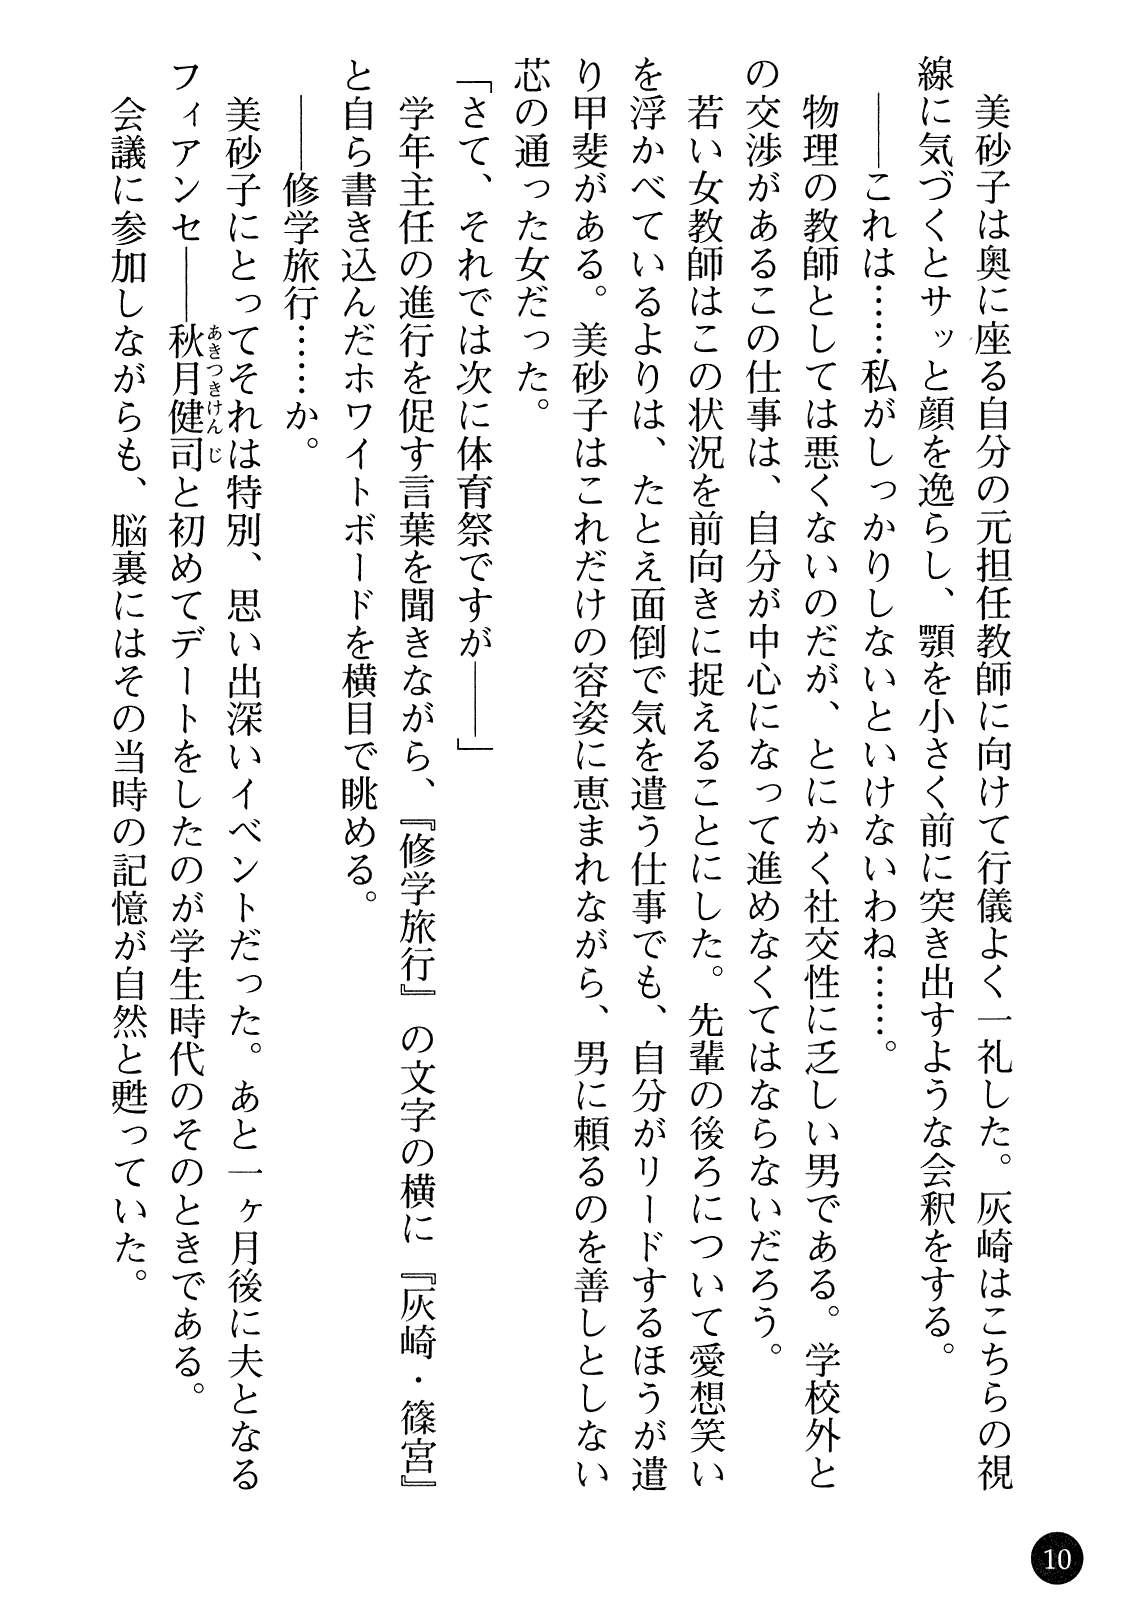 美砂子は奥に座る自分の元担任教師に向けて行儀よく一礼した。灰崎はこちらの視
線に気づくとサッと顔を逸らし、顎を小さく前に突き出すような会釈をする。
――これは……私がしっかりしないといけないわね……。
物理の教師としては悪くないのだが、とにかく社交性に乏しい男である。学校外と
の交渉があるこの仕事は、自分が中心になって進めなくてはならないだろう。
若い女教師はこの状況を前向きに捉えることにした。先輩の後ろについて愛想笑い
を浮かべているよりは、たとえ面倒で気を遣う仕事でも、自分がリードするほうが遣
り甲斐がある。美砂子はこれだけの容姿に恵まれながら、男に頼るのを善しとしない
芯の通った女だった。
「さて、それでは次に体育祭ですが――」
学年主任の進行を促す言葉を聞きながら、『修学旅行』の文字の横に『灰崎・篠宮』
と自ら書き込んだホワイトボードを横目で眺める。
――修学旅行……か。
美砂子にとってそれは特別、思い出深いイベントだった。あと一ヶ月後に夫となる
フィアンセ――秋月健司と初めてデートをしたのが学生時代のそのときである。
あきつきけんじ
会議に参加しながらも、脳裏にはその当時の記憶が自然と甦っていた。
10